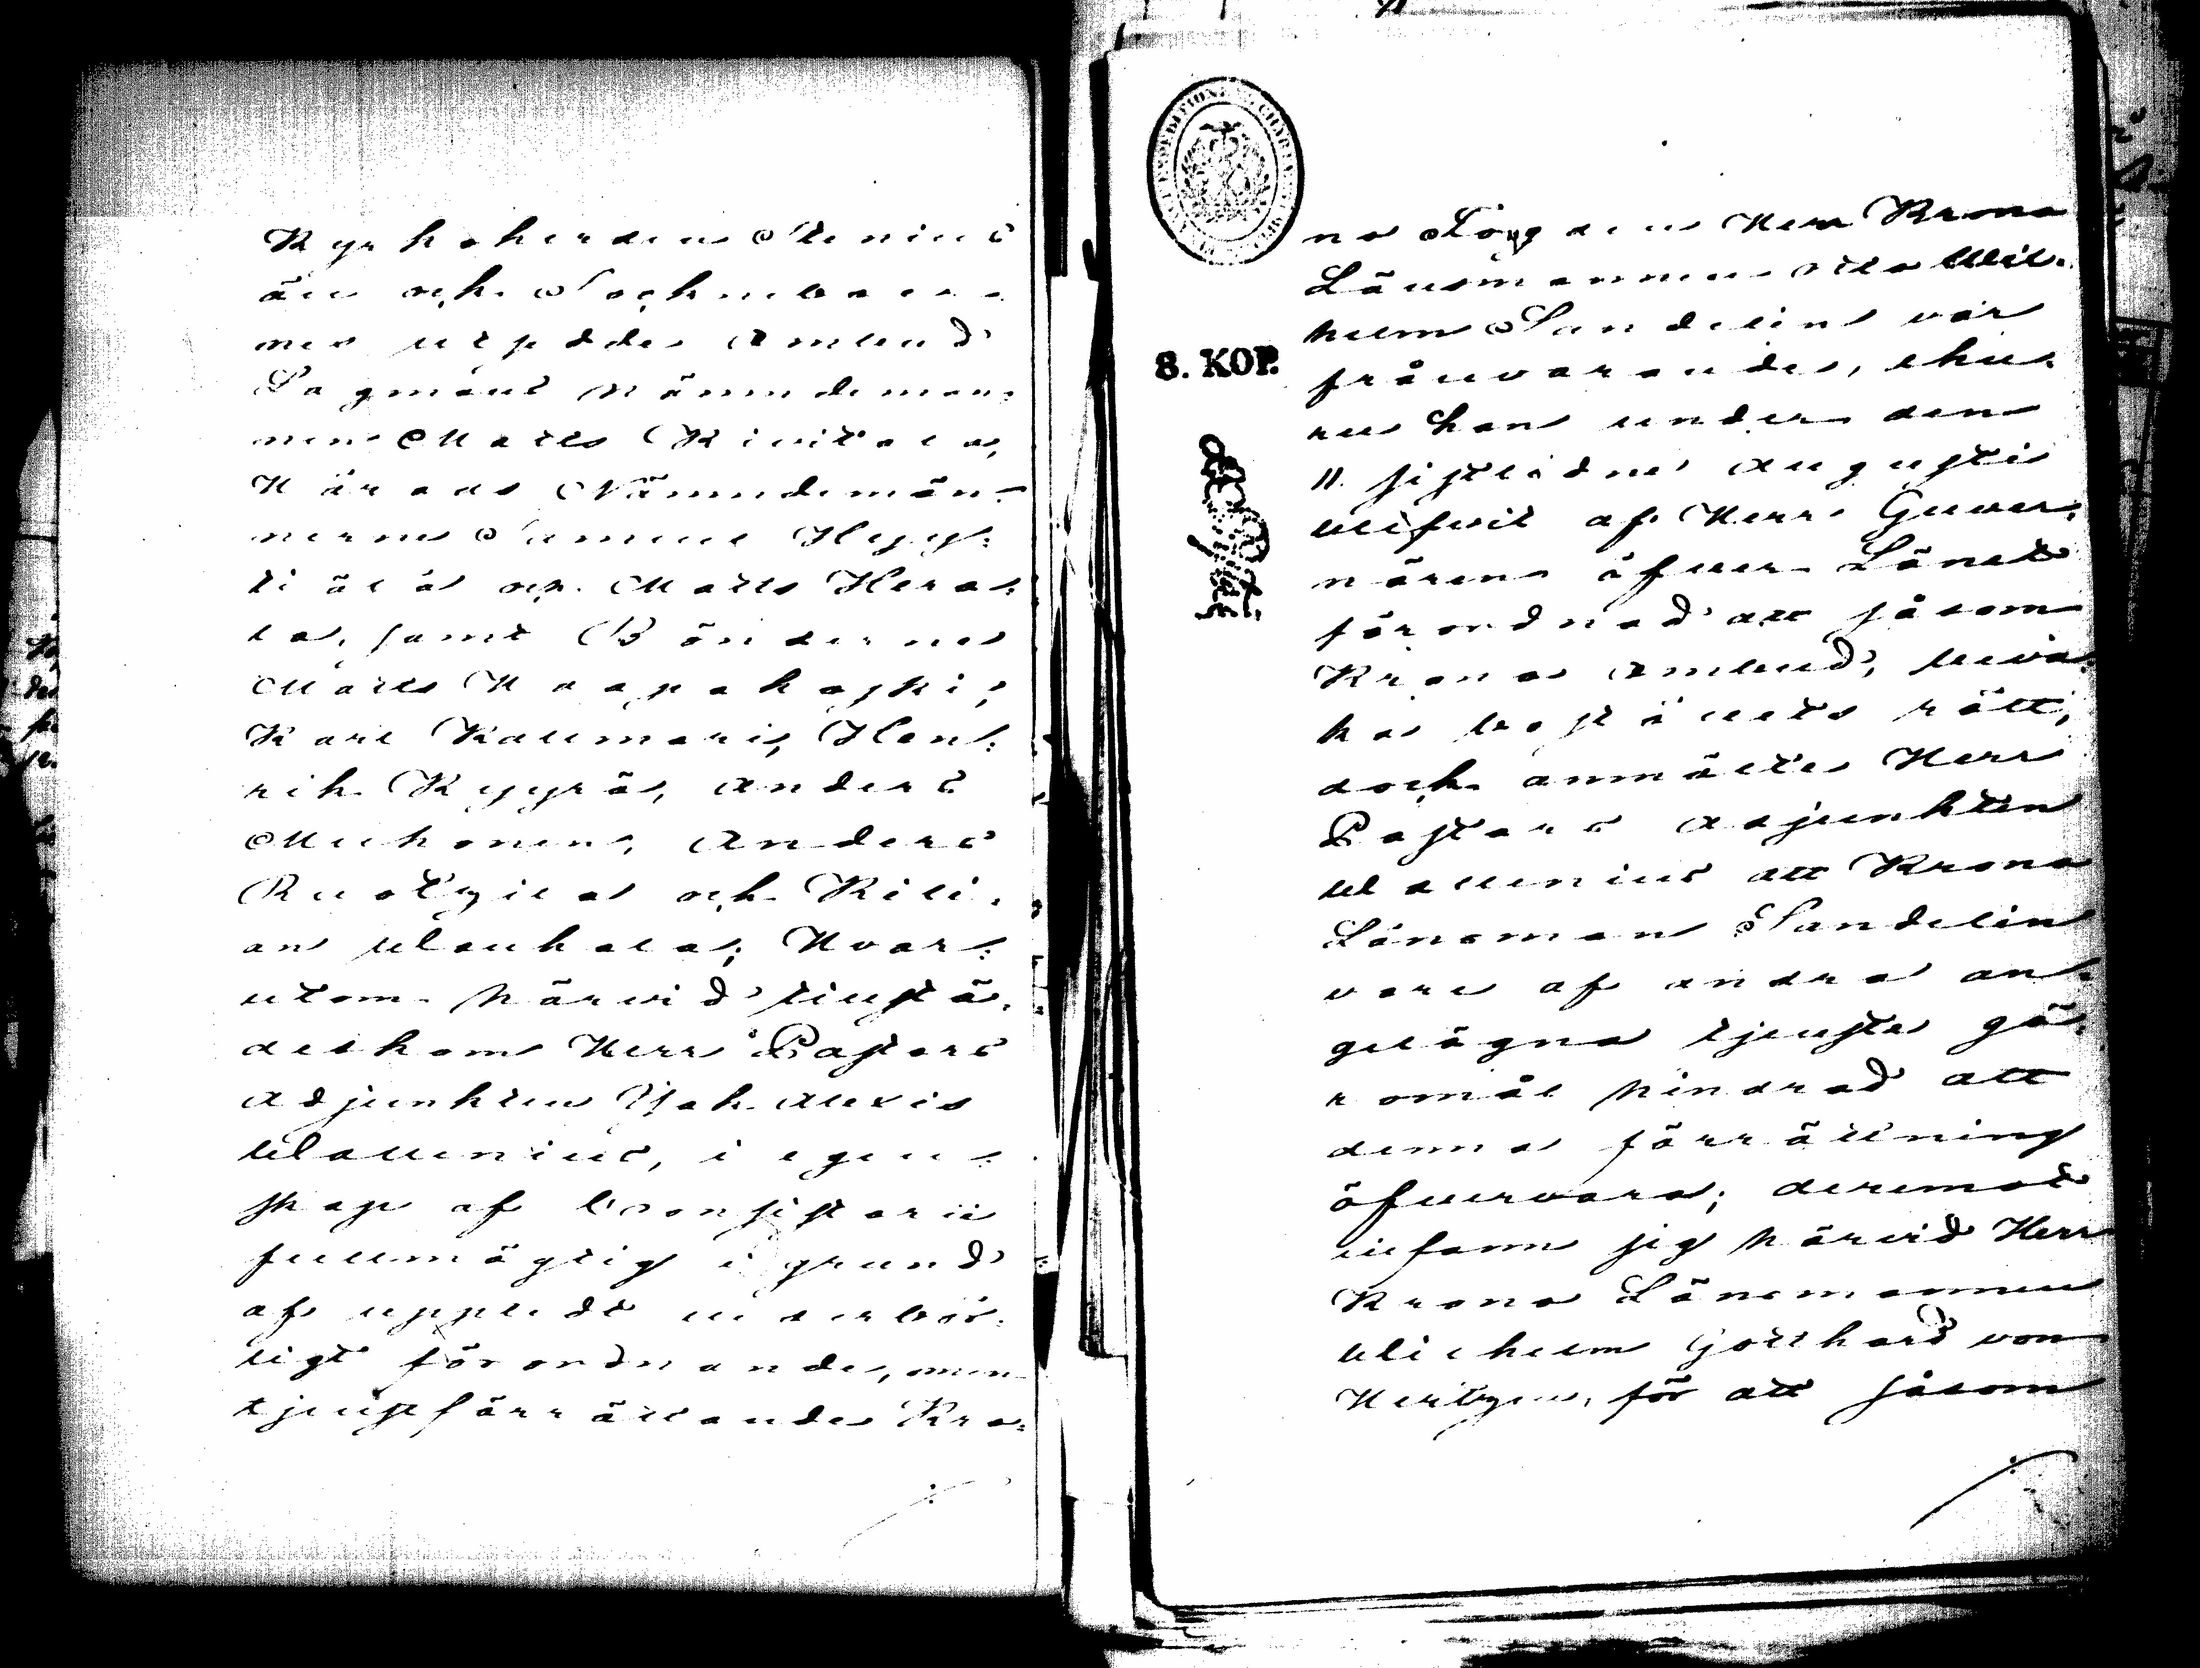 Kyrkoherden Stenius
än och Sockneboer-
nes utsedde Ombud
Lagmans Nämndeman-
nen Matts Kivitalo,
Härads Nämndemän-
nerne Samuel Hyy-
tiälä och Matts Hera-
la, samt Bönderne
Matts Haapakoski,
Karl Kallmari, Hen-
rik Kyyrä, Anders
Muhonen, Anders
Ruotzila och Kili-
an Wlaukala; Hvar-
utom härvid tillstä-
deskom Herr Pastors
Adjunkten Joh. Alexis
Wallenius, i egen-
skap af Consistorii
fullmägtig i grund
af uppledt veder bör-
ligt förordnande, men
tjenstförrättande Kro-
no Fogden Herr Krono
Länsmannen Otto Wil-
helm Sandelin var
frånvarande, ehu-
ru han under den
11 sistledne Augusti
blifvit af Herr Guver-
nören öfver Länet
förordnad att såsom
Krono Ombud, beva-
ka boställets rätt,
dock anmälte Herr
Pastors Adjunkten
Wallenius att Krono
Länsman Sandelin
vore af andra an-
gelägna tjenste gö-
romål hindrad att
denna förrättning
öfvervara; deremot
infann sig härvid Herr
Krono Länsmannen
Wilhelm Gotthard von
Hertzen, för att såsom
8. KOP.